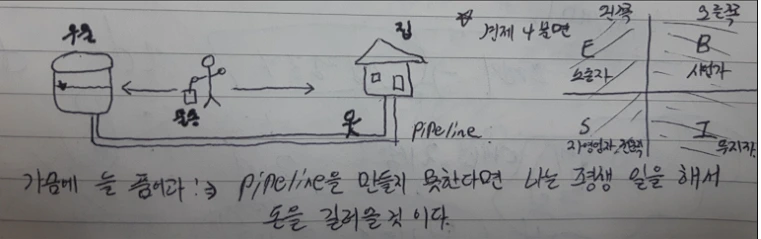 우물
집
☆ 경제 4분면
왼쪽
오른쪽
E
노동자
B
사업가
물통
pipeline
S
자영업자, 전문직
I
투자자
가슴에 늘 품어라! ⇒ pipeline을 만들지 못한다면 나는 평생 일을 해서
돈을 길러올 것이다.